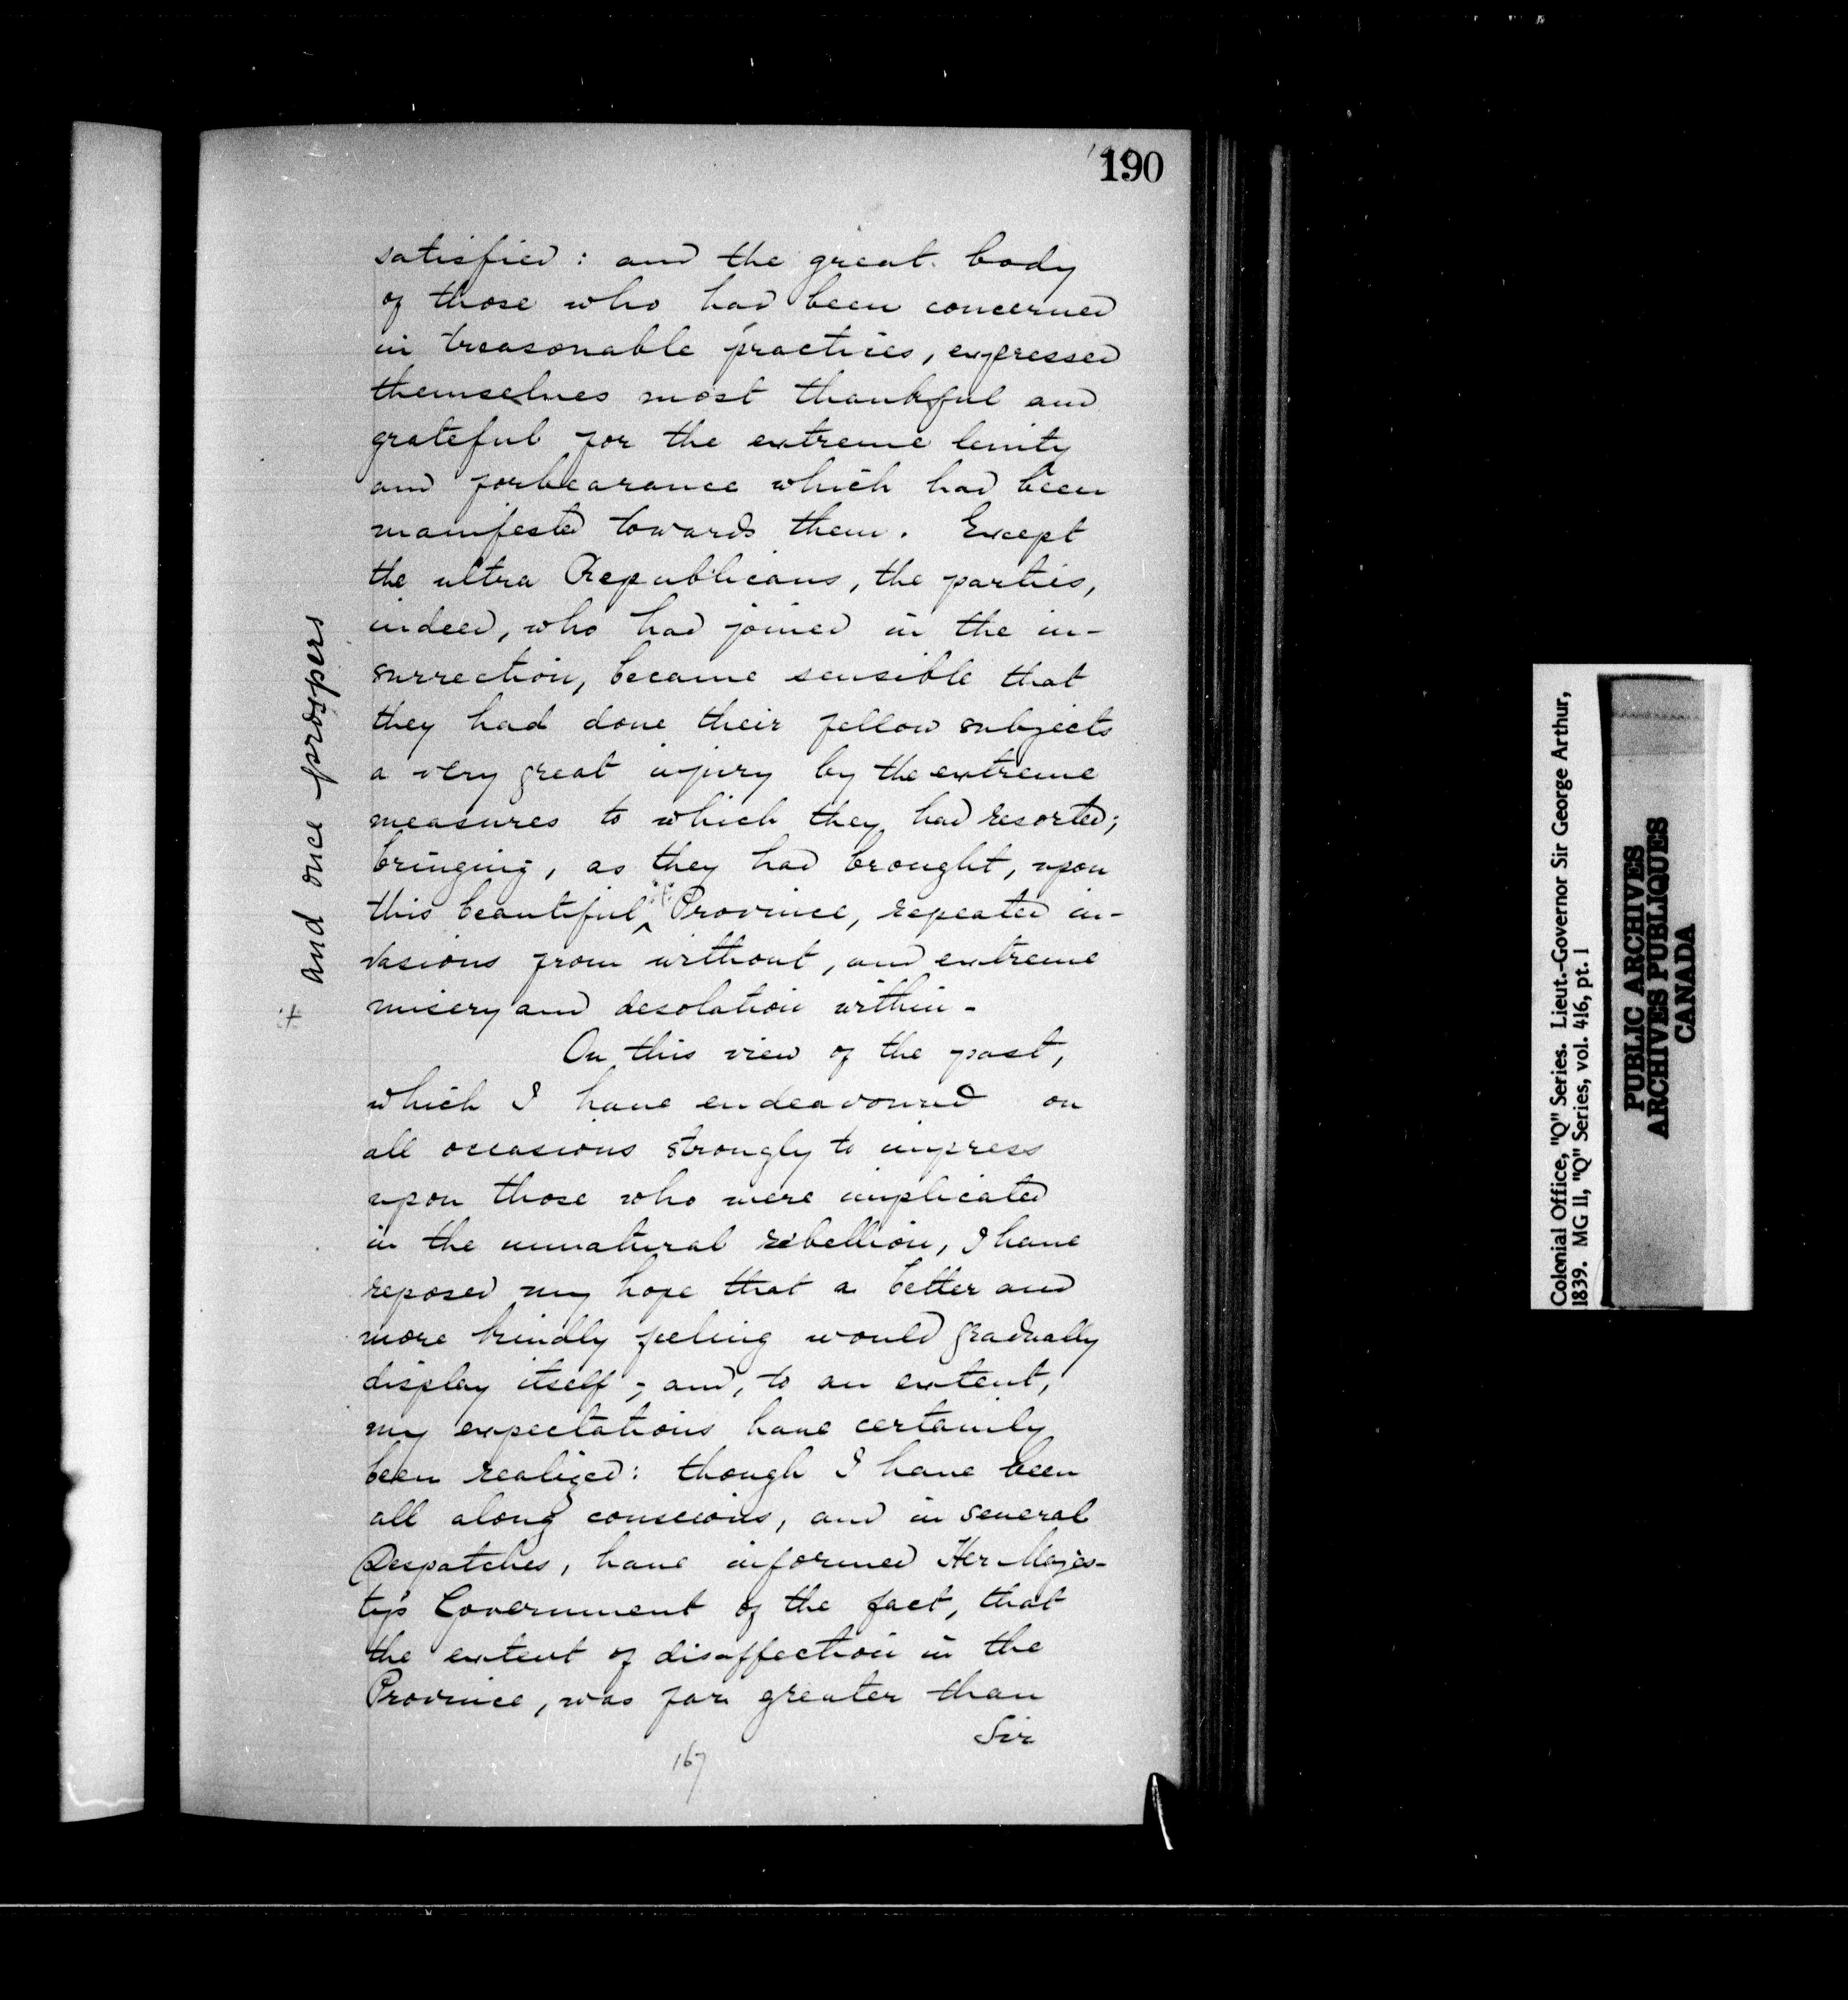 190
satisfied: and the great body
of those who had been concerned
in treasonable practices, expressed
themselves most thankful and
grateful for the extreme lenity
and forbearance which had been
manifested towards them. Except
the ultra Republicans, the parties,
indeed, who had joined in the in-
surrection, became sensible that
they had done their fellow subjects
a very great injury by the extreme
measures to which they had resorted;
bringing, as they had brought, upon
this beautiful ^ Province, repeated in-
vasions from without, and extreme
misery and desolation within -
On this view of the past,
which I have endeavoured on
all occasions strongly to impress
upon those who were implicated
in the unnatural rebellion, I have
reposed my hope that a better and
more kindly feeling would gradually
display itself; and, to an extent,
my expectations have certainly
been realized: though I have been
all along conscious, and in several
Despatches, have informed Her Majes-
ty's Government of the fact, that
the extent of disaffection in the
Province, was far greater than
Sir
167
+ and once prospers
Colonial Office, "Q" Series. Lieut.-Governor Sir George Arthur,
1839. MG 11, "Q" Series, vol. 416, pt. 1
PUBLIC ARCHIVES
ARCHIVES PUBLIQUES
CANADA